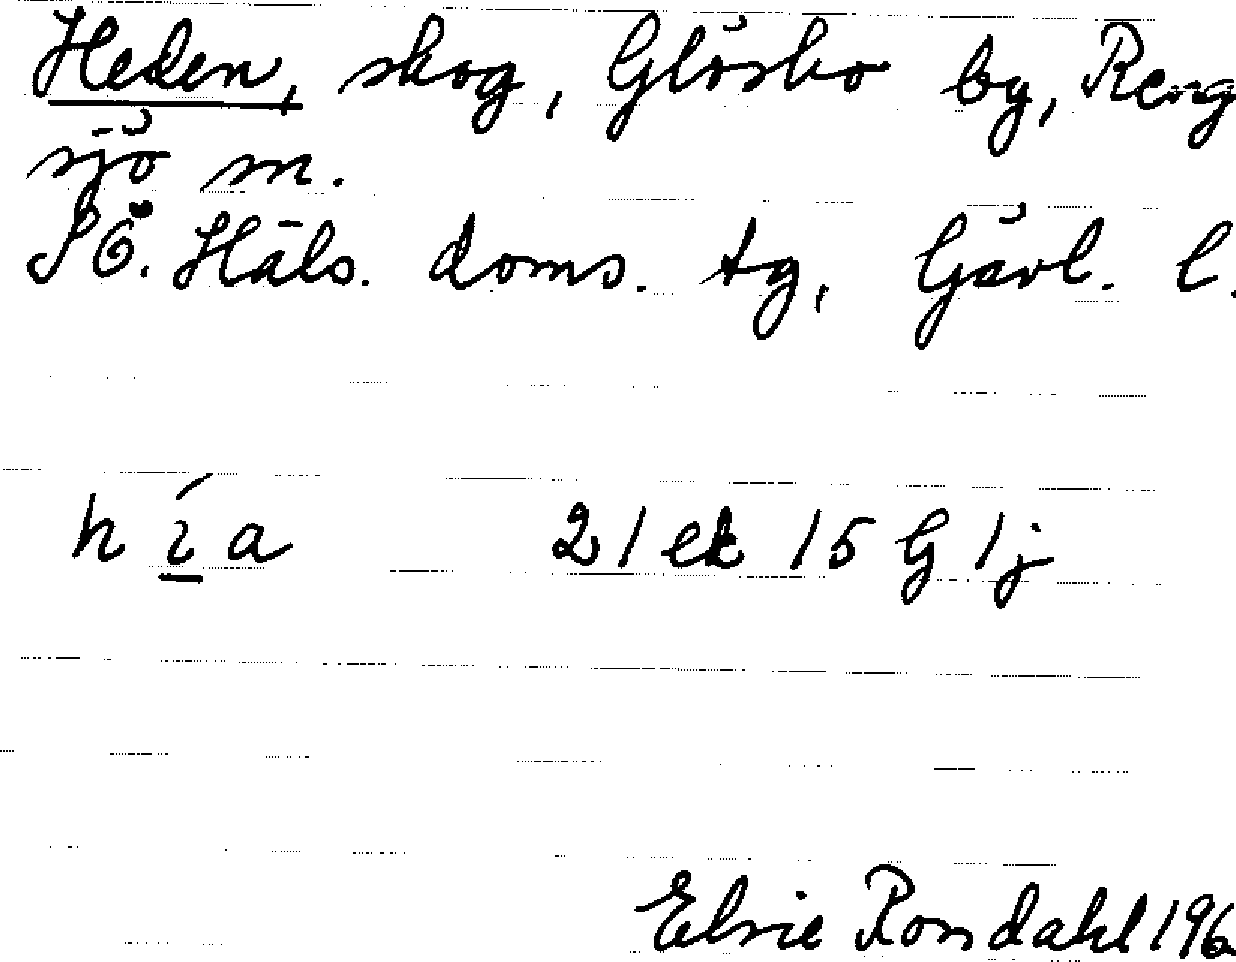 Heden, skog, Glösbo by, Reng
sjö sn.
SÖ. Häls. doms. tg, Gävl. l.
hía 21 ek 15 G 1j
Elsie Rondahl 196